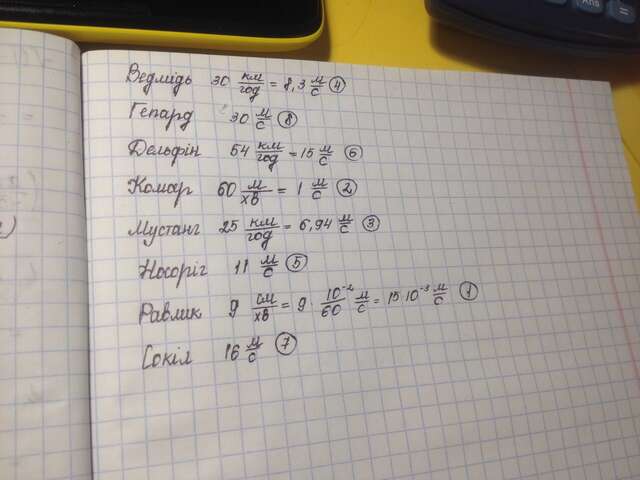 Ведмідь 30 км/год = 8,3 м/с ④
Гепард 30 м/с ⑧
Дельфін 54 км/год = 15 м/с ⑥
Комар 60 м/хв = 1 м/с ②
Мустанг 25 км/год = 6,94 м/с ③
Носоріг 11 м/с ⑤
Равлик 9 см/хв = 9 · 10⁻²/60 м/с = 15 · 10⁻³ м/с ①
Сокіл 16 м/с ⑦